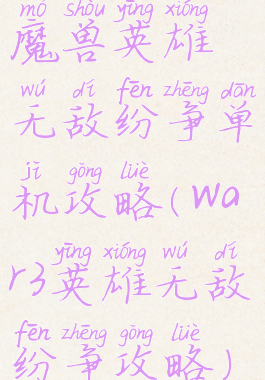 mó shòu yīng xióng
魔兽英雄
wú dí fēn zhēng dān
无敌纷争单
jī gōng lüè
机攻略(wa
yīng xióng wú dí
r3英雄无敌
fēn zhēng gōng lüè
纷争攻略)